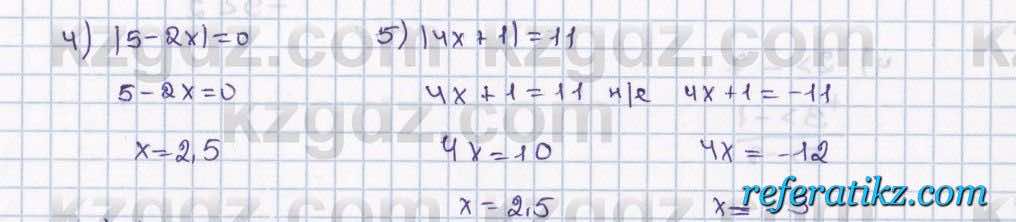 4) |5-2x|=0 5) |4x+1|=11
5-2x=0 4x+1=11 н/е 4x+1=-11
x=2,5 4x=10 4x=-12
x=2,5 x=-3
kzgdz.com
kzgdz.com
referatikz.com